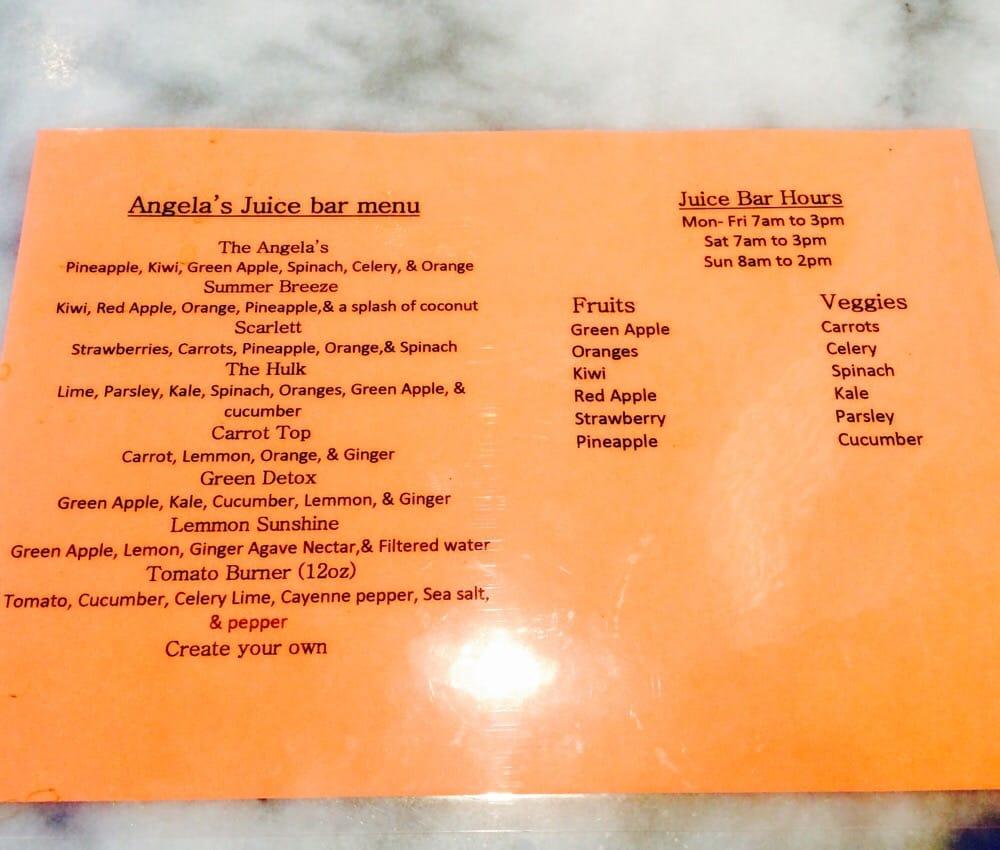 Angela's Juice bar menu
The Angela's
Pineapple, Kiwi, Green Apple, Spinach, Celery, & Orange
Summer Breeze
Kiwi, Red Apple, Orange, Pineapple,& a splash of coconut
Scarlett
Strawberries, Carrots, Pineapple, Orange,& Spinach
The Hulk
Lime, Parsley, Kale, Spinach, Oranges, Green Apple, &
cucumber
Carrot Top
Carrot, Lemmon, Orange, & Ginger
Green Detox
Green Apple, Kale, Cucumber, Lemmon, & Ginger
Lemmon Sunshine
Green Apple, Lemon, Ginger Agave Nectar,& Filtered water
Tomato Burner (12oz)
Tomato, Cucumber, Celery Lime, Cayenne pepper, Sea salt,
& pepper
Create your own
Juice Bar Hours
Mon- Fri 7am to 3pm
Sat 7am to 3pm
Sun 8am to 2pm
Fruits
Green Apple
Oranges
Kiwi
Red Apple
Strawberry
Pineapple
Veggies
Carrots
Celery
Spinach
Kale
Parsley
Cucumber